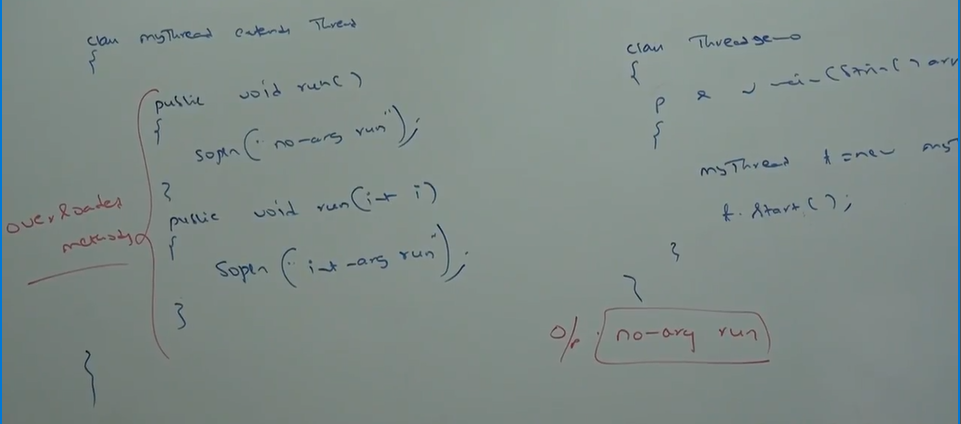 class myThread extends Thread
{
public void run()
{
sopln("no-arg run");
}
public void run(int i)
{
sopln("int-arg run");
}
}
overloaded
methods
class ThreadDemo
{
p s v main(String[] ar
{
myThread t = new my
t.start();
}
}
o/p: no-arg run